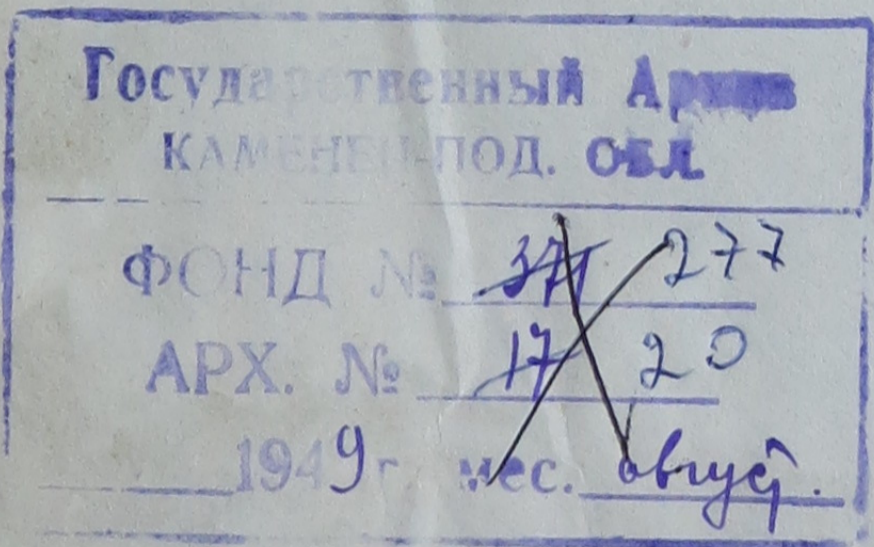 Государственный Архив
КАМЕНЕЦ-ПОД. ОБЛ.
ФОНД № 371 277
АРХ. № 17 20
1949 г. мес. август.